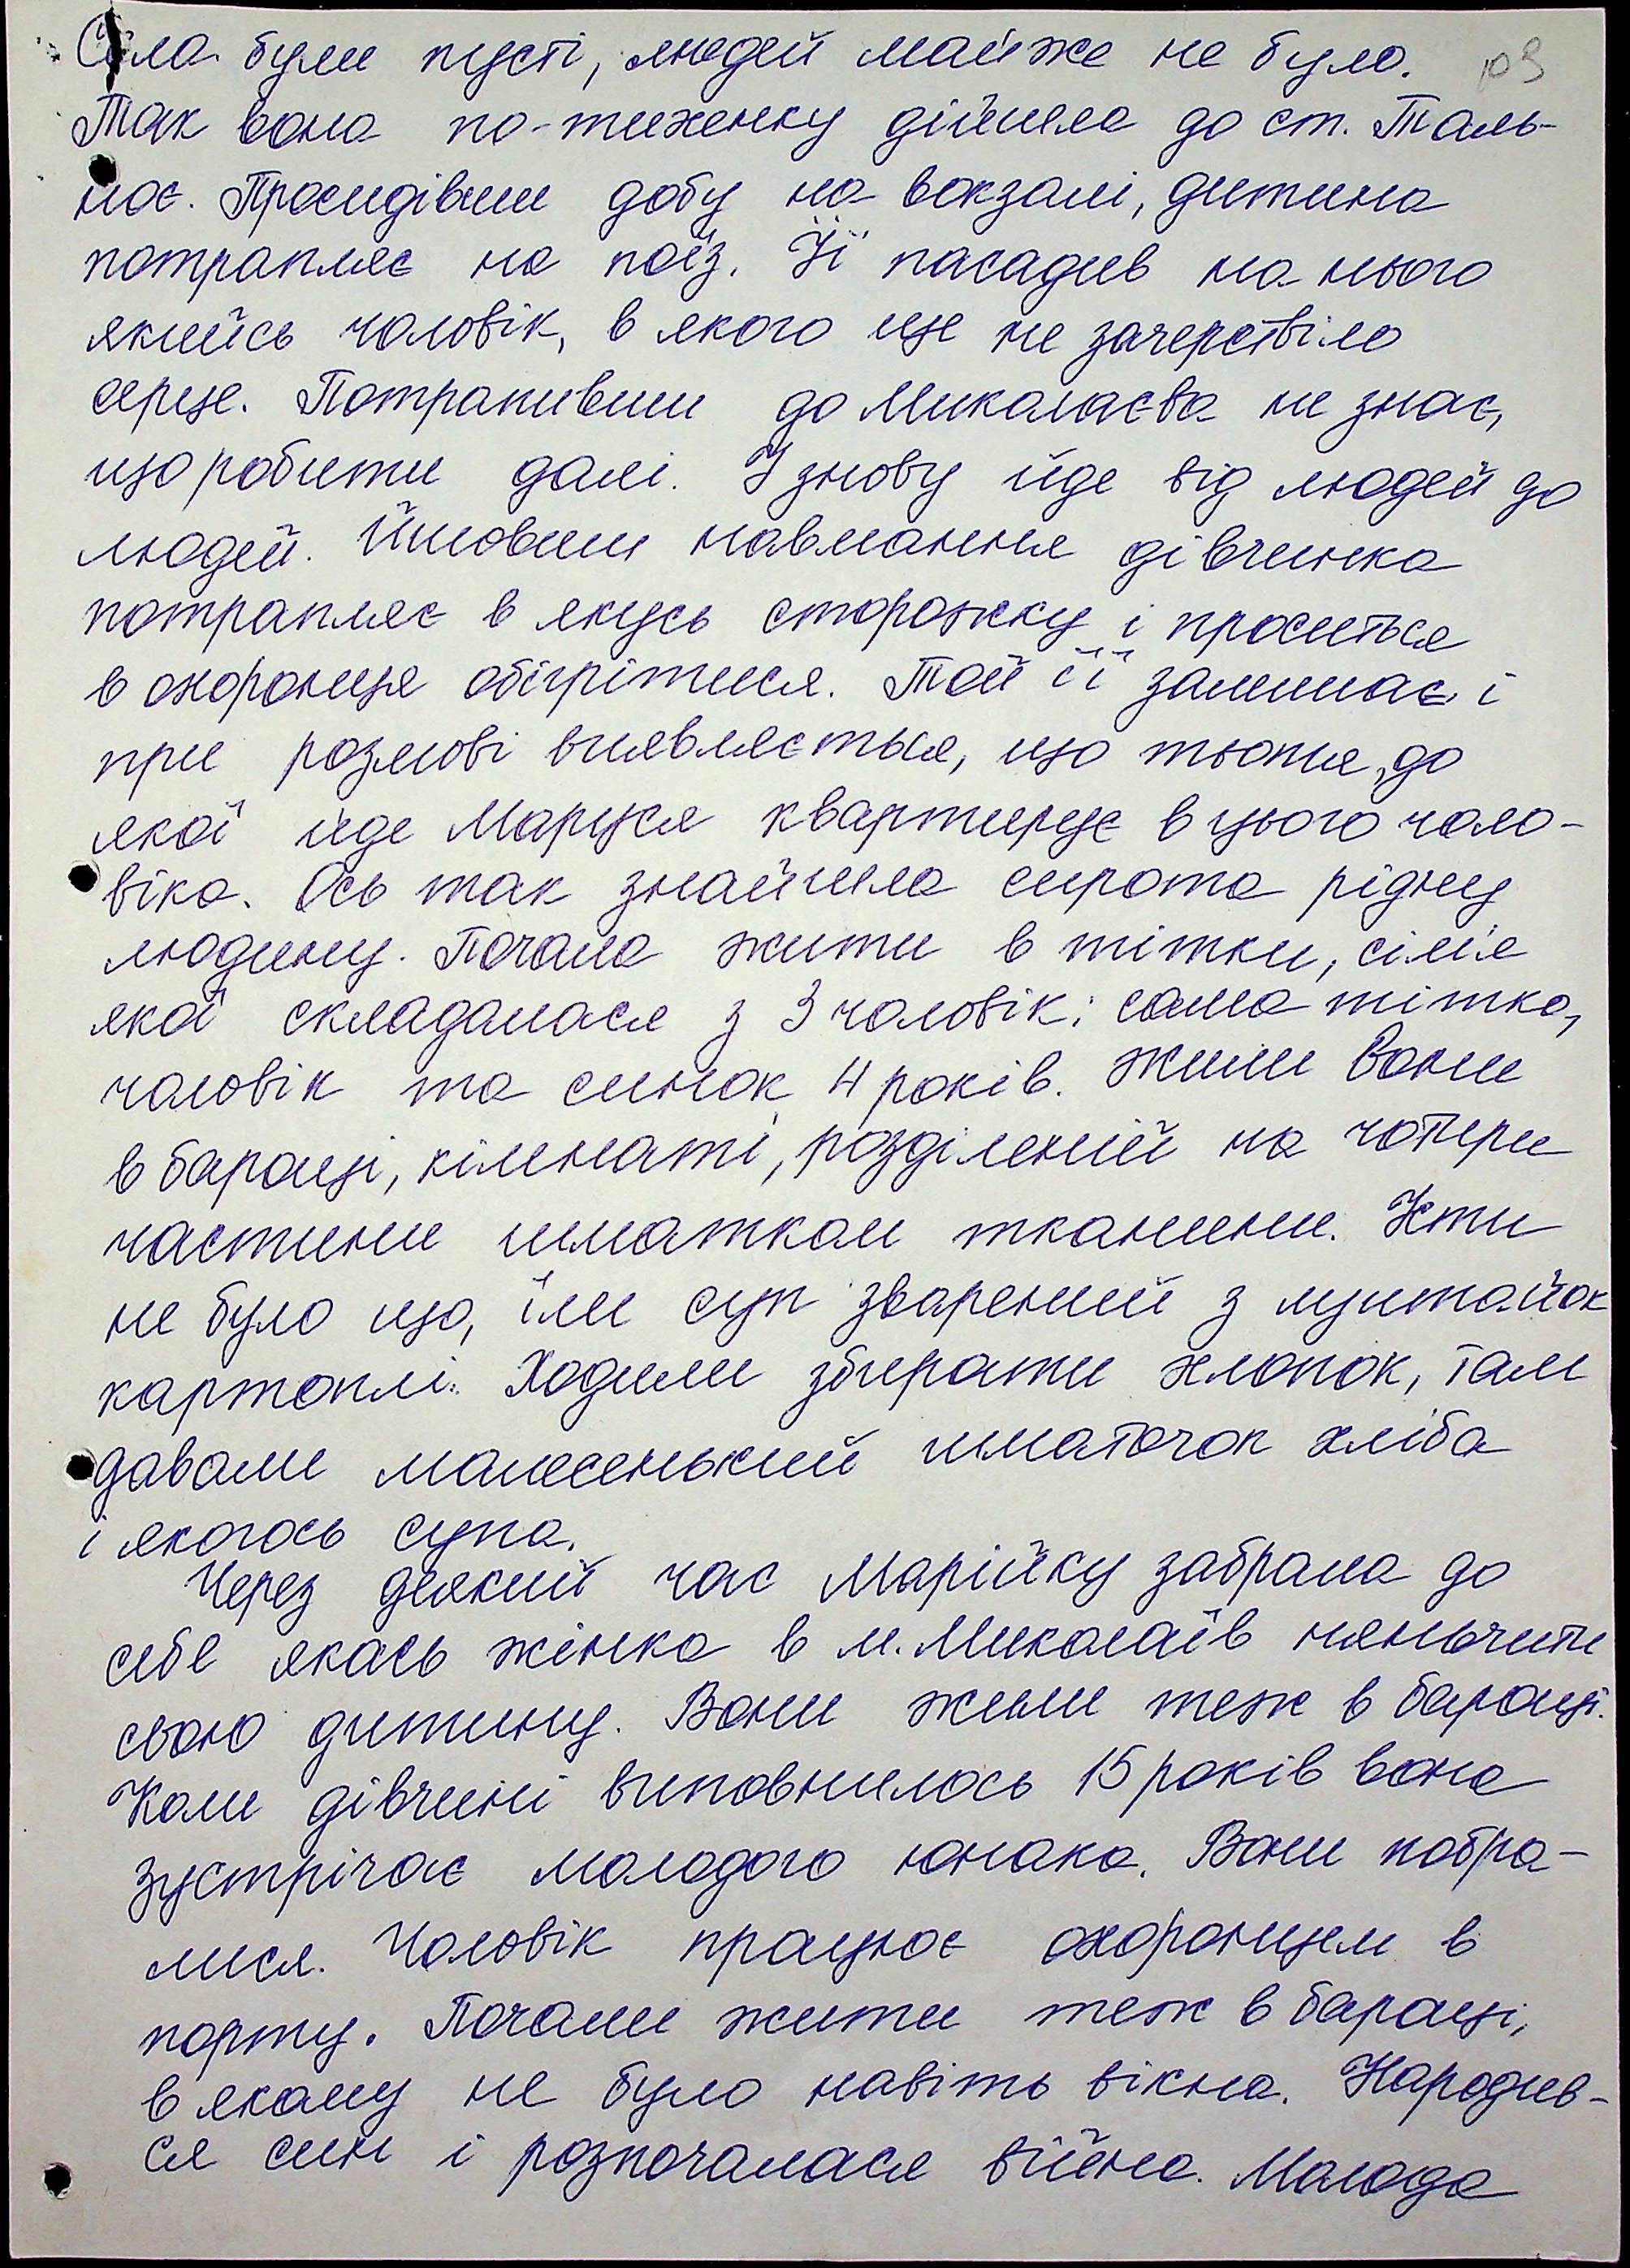 Села були пусті, людей майже не було.
Так вона по-тиженку дійшла до ст. Таль-
ноє. Просидівши добу на вокзалі, дитина
потрапляє на поїз. Її пасадив на нього
якийсь чоловік, в якого ще не зачерствіло
серце. Потрапивши до Миколаєва не знає,
що робити далі. І знову йде від людей до
людей. Йшовши навмання дівчинка
потрапляє в якусь сторожку і проситься
в охоронця обігрітися. Той її залишає і
при розмові виявляється, що тьотя, до
якої йде Маруся квартирує в цього чоло-
віка. Ось так знайшла сирота рідну
людину. Почала жити в тітки, сім'я
якої складалася з 3 чоловік: сама тітка,
чоловік та синок 4 років. Жили вони
в бараці, кімнаті, розділеній на чотири
частини шматком тканини. Їсти
не було що, їли суп зварений з луштайок
картоплі. Ходили збирати хлопок, там
давали малесенький шматочок хліба
і якогось супа.
Через деякий час Марійку забрала до
себе якась жінка в м. Миколаїв няньчити
свою дитину. Вони жили теж в бараці.
Коли дівчині виповнилось 15 років вона
зустрічає молодого юнака. Вони побра-
лися. Чоловік працює охоронцем в
порту. Почали жити теж в бараці,
в якому не було навіть вікна. Народив-
ся син і розпочалася війна. Молода